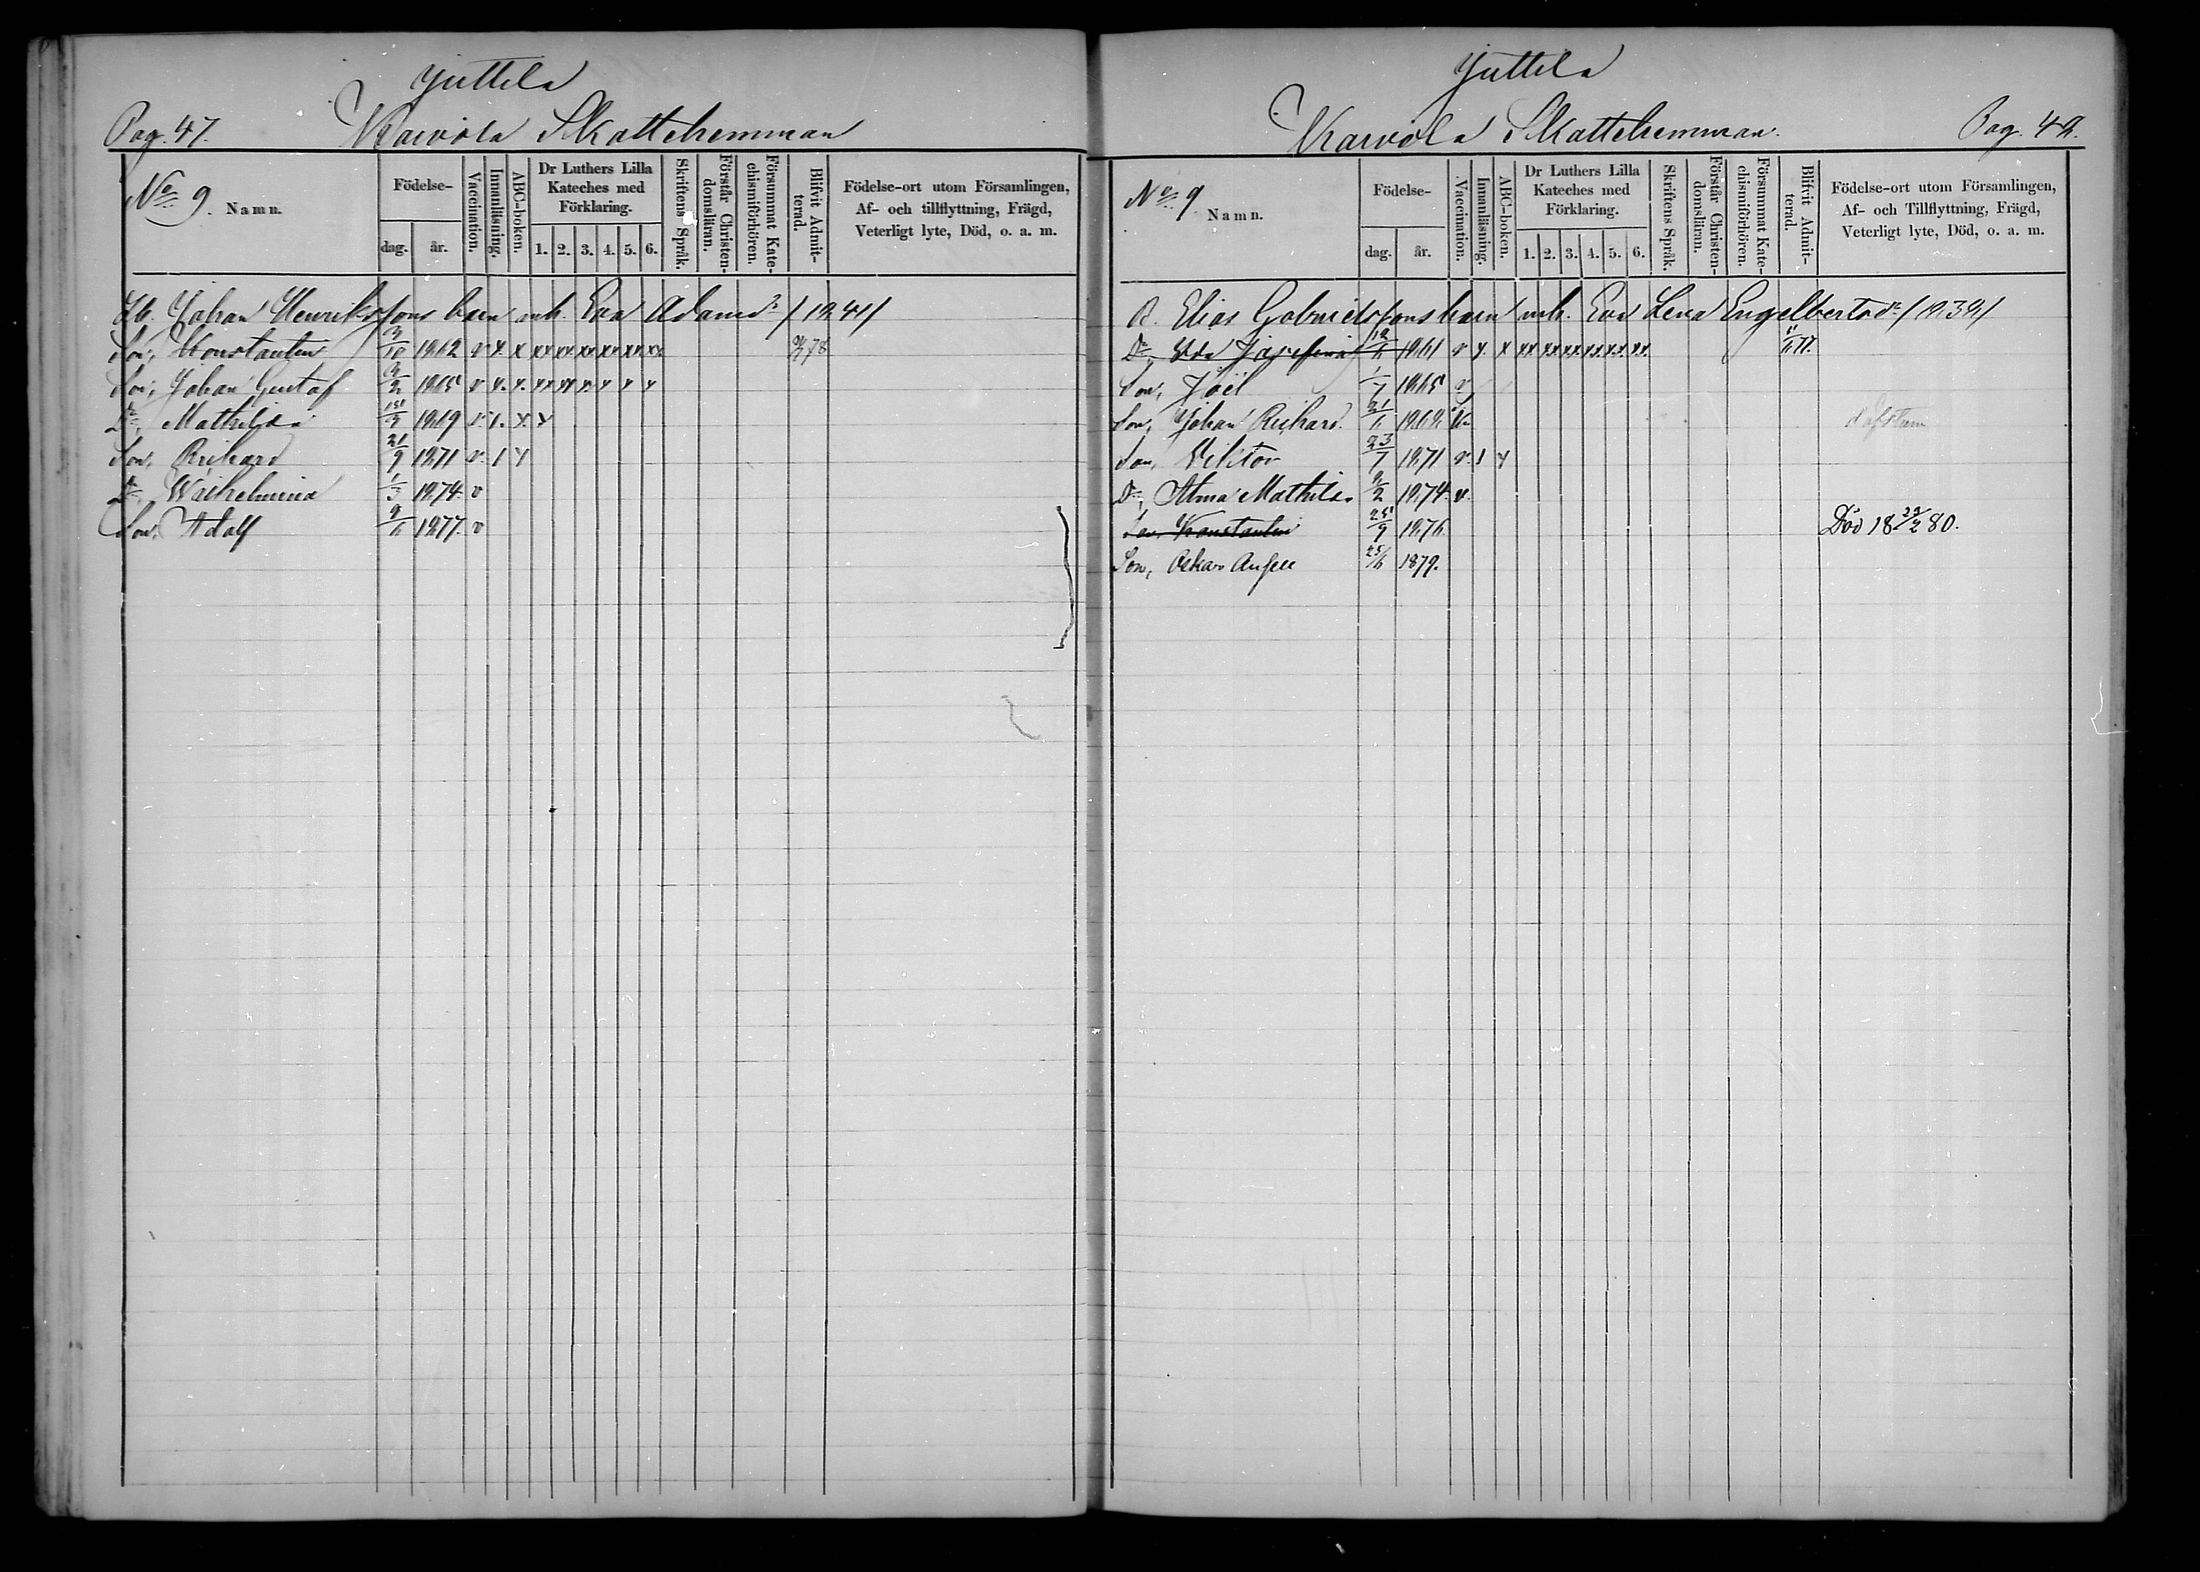 Juttila
Pag. 47. Karvola Skattehemman
No 9. Namn.
Födelse-
dag. år.
Vaccination.
Innanläsning.
ABC-boken.
Dr Luthers Lilla
Kateches med
Förklaring.
1. 2. 3. 4. 5. 6.
Skriftens Språk.
Förstår Christen-
domsläran.
Försummat Kate-
chismiförhören.
Blifvit Admit-
terad.
Födelse-ort utom Församlingen,
Af- och tillflyttning, Frägd,
Veterligt lyte, Död, o. a. m.
Johan Henrikssons barn mh. Eva Adamsdr / 1841/
Son, Konstantin 3/10 1862 v x x xx xx xx xx xx xx 78
Son, Johan Gustaf 2/2 1865 v x. x. xx xx x x x x
Dr, Mathilda 1869 v 1. x x
Son, Richard 21/9 1871 v 1 x
Dr, Wilhelmina 1/3 1874. v
Son, Adolf 1877. v
Juttila
Karvola Skattehemman. Pag. 48.
No 9. Namn.
Födelse-
dag. år.
Vaccination.
Innanläsning.
ABC-boken.
Dr Luthers Lilla
Kateches med
Förklaring.
1. 2. 3. 4. 5. 6.
Skriftens Språk.
Förstår Christen-
domsläran.
Försummat Kate-
chismiförhören.
Blifvit Admit-
terad.
Födelse-ort utom Församlingen,
Af- och Tillflyttning, Frägd,
Veterligt lyte, Död, o. a. m.
B. Elias Gabrielssons barn mh. Eva Lena Engelbertsdr / 1839/
Dr, Ida Josefina 1861 v x. x xx xx xx xx xx xx
Son, Joël 1/7 1865 v
Son, Johan Richard 21/11 1868
Son, Viktor 23/7 1871 v 1 x
Dr, Alma Mathilda 2/2 1874. v.
Son, Konstantin 25/9 1876. Död 18 80.
Son, Oskar 25/6 1879.